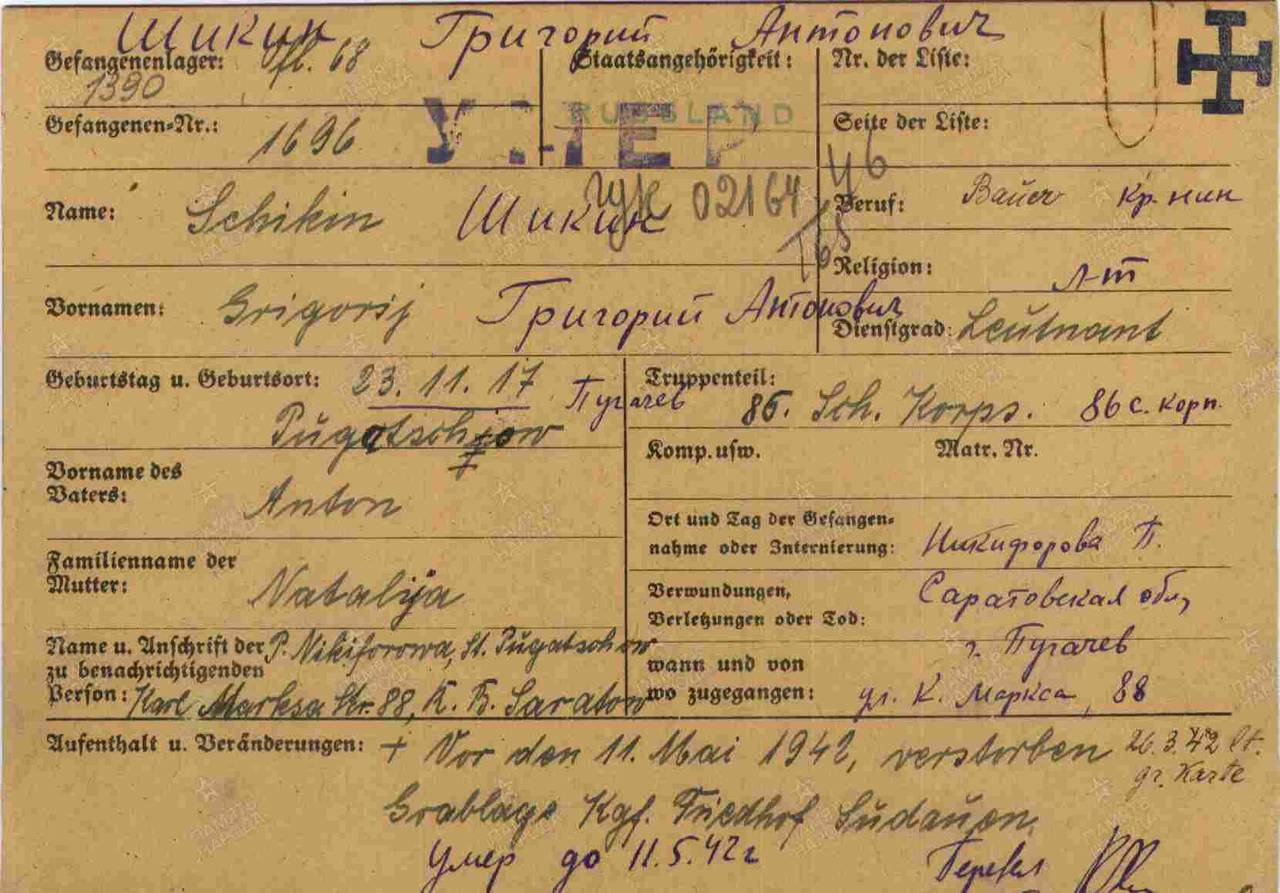 Шикин Григорий Антонович
Gefangenenlager: Ofl. 68
1390
Staatsangehörigkeit:
RUSSLAND
Nr. der Liste:
Gefangenen-Nr.: 1696
УМЕР
Seite der Liste:
46
02164
Name: Schikin Шикин
Beruf: Bauer Кр. нин
Religion:
Vornamen: Grigorij Григорий Антонович
Dienstgrad: Leutnant
Geburtstag u. Geburtsort: 23. 11. 17 Пугачев
Pugatschjow
Truppenteil:
86. Sch. Korps. 86 с. корп.
Komp. usw. Matr. Nr.
Vorname des
Vaters: Anton
Ort und Tag der Gefangen-
nahme oder Internierung: Никифорова П.
Familienname der
Mutter: Natalija
Verwundungen, Саратовская обл,
Verletzungen oder Tod:
г. Пугачев
Name u. Anschrift der P. Nikiforowa, St. Pugatschow
zu benachrichtigenden
Person: Karl Marksa Str. 88, K. B. Saratow
wann und von
wo zugegangen: ул. К. Маркса, 88
Aufenthalt u. Veränderungen: + Vor den 11. Mai 1942, verstorben 26.3.42 lt.
gr. Karte
Grablage Kgf. Friedhof Sudauen.
умер до 11.5.42 г
Перевел